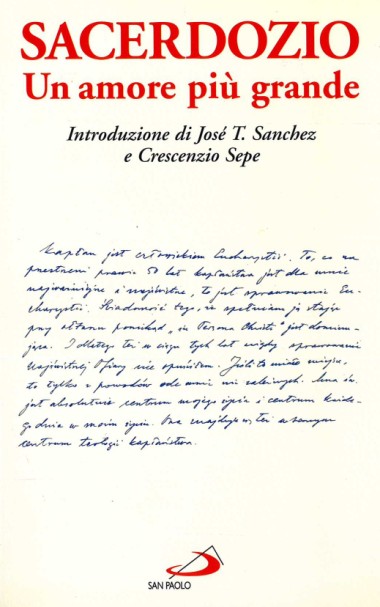 SACERDOZIO
Un amore più grande
Introduzione di José T. Sanchez
e Crescenzio Sepe
Kapłan jest człowiekiem Eucharystii. To, co na
przestrzeni prawie 50 lat kapłaństwa jest dla mnie
najważniejsze i najświętsze, to jest sprawowanie Eu-
charystii. Świadomość tego, że spełniam ją stając
przy ołtarzu poniekąd „in Persona Christi" jest dominu-
jąca. I dlatego też w ciągu tych lat nigdy sprawowania
Najświętszej Ofiary nie opuściłem. Jeśli to miało miejsce,
to tylko z powodów ode mnie nie zależnych. Msza św.
jest absolutnie centrum mojego życia i centrum każde-
go dnia w moim życiu. Ona znajduje się też w samym
centrum teologii kapłaństwa.
SAN PAOLO